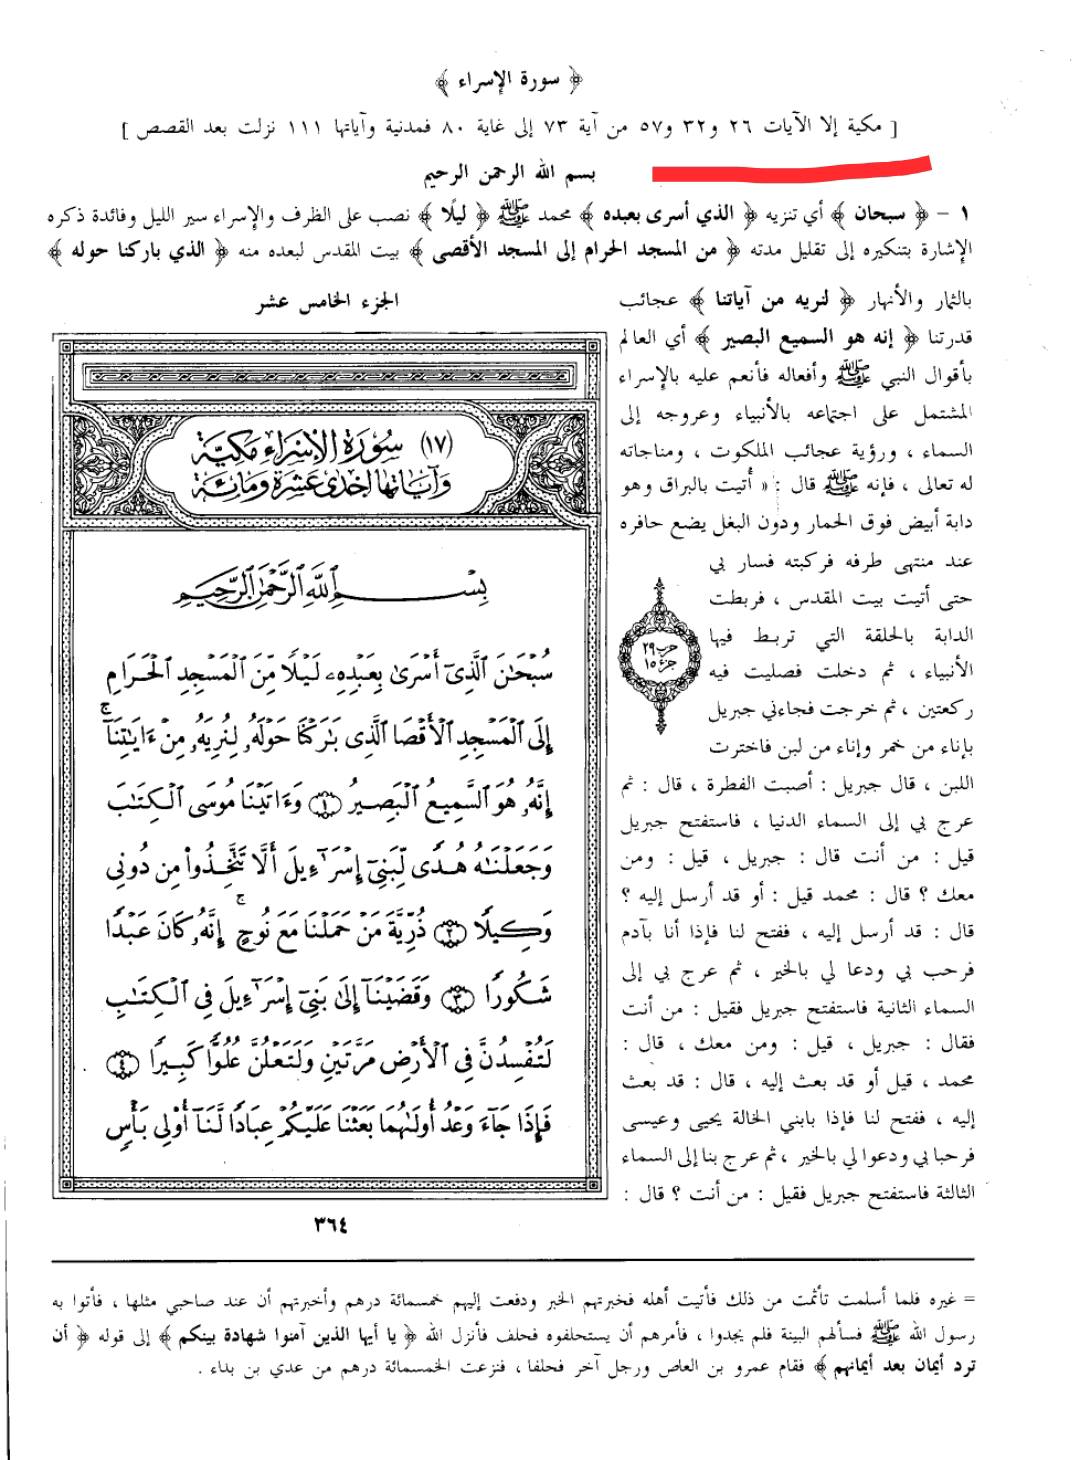 ﴿ سورة الإسراء ﴾
[ مكية إلا الآيات ٢٦ و٣٢ و٥٧ من آية ٧٣ إلى غاية ٨٠ فمدنية وآياتها ١١١ نزلت بعد القصص ]
بسم الله الرحمن الرحيم
١ - ﴿ سبحان ﴾ أي تنزيه ﴿ الذي أسرى بعبده ﴾ محمد ﷺ ﴿ ليلًا ﴾ نصب على الظرف والإسراء سير الليل وفائدة ذكره
الإشارة بتنكيره إلى تقليل مدته ﴿ من المسجد الحرام إلى المسجد الأقصى ﴾ بيت المقدس لبعده منه ﴿ الذي باركنا حوله ﴾
بالثمار والأنهار ﴿ لنريه من آياتنا ﴾ عجائب
قدرتنا ﴿ إنه هو السميع البصير ﴾ أي العالم
بأقوال النبي ﷺ وأفعاله فأنعم عليه بالإسراء
المشتمل على اجتماعه بالأنبياء وعروجه إلى
السماء ، ورؤية عجائب الملكوت ، ومناجاته
له تعالى ، فإنه ﷺ قال : « أُتيت بالبراق وهو
دابة أبيض فوق الحمار ودون البغل يضع حافره
عند منتهى طرفه فركبته فسار بي
حتى أتيت بيت المقدس ، فربطت
الدابة بالحلقة التي تربط فيها
الأنبياء ، ثم دخلت فصليت فيه
ركعتين ، ثم خرجت فجاءني جبريل
بإناء من خمر وإناء من لبن فاخترت
اللبن ، قال جبريل : أصبت الفطرة ، قال : ثم
عرج بي إلى السماء الدنيا ، فاستفتح جبريل
قيل : من أنت قال : جبريل ، قيل : ومن
معك ؟ قال : محمد قيل : أو قد أرسل إليه ؟
قال : قد أرسل إليه ، ففتح لنا فإذا أنا بآدم
فرحب بي ودعا لي بالخير ، ثم عرج بي إلى
السماء الثانية فاستفتح جبريل فقيل : من أنت
فقال : جبريل ، قيل : ومن معك ، قال :
محمد ، قيل أو قد بعث إليه ، قال : قد بعث
إليه ، ففتح لنا فإذا بابني الخالة يحيى وعيسى
فرحبا بي ودعوا لي بالخير ، ثم عرج بنا إلى السماء
الثالثة فاستفتح جبريل فقيل : من أنت ؟ قال :
حزب ٢٩
جزء ١٥
الجزء الخامس عشر
(١٧) سُورَةُ الإِسْرَاءِ مَكِيَّة
وَآيَاتُهَا إِحْدَى عَشَرَةَ وَمِائَة
بِسْمِ ٱللَّهِ ٱلرَّحْمَٰنِ ٱلرَّحِيمِ
سُبْحَٰنَ ٱلَّذِىٓ أَسْرَىٰ بِعَبْدِهِۦ لَيْلًا مِّنَ ٱلْمَسْجِدِ ٱلْحَرَامِ
إِلَى ٱلْمَسْجِدِ ٱلْأَقْصَا ٱلَّذِى بَٰرَكْنَا حَوْلَهُۥ لِنُرِيَهُۥ مِنْ ءَايَٰتِنَآ ۚ
إِنَّهُۥ هُوَ ٱلسَّمِيعُ ٱلْبَصِيرُ ﴿١﴾ وَءَاتَيْنَا مُوسَى ٱلْكِتَٰبَ
وَجَعَلْنَٰهُ هُدًى لِّبَنِىٓ إِسْرَٰٓءِيلَ أَلَّا تَتَّخِذُوا۟ مِن دُونِى
وَكِيلًا ﴿٢﴾ ذُرِّيَّةَ مَنْ حَمَلْنَا مَعَ نُوحٍ ۚ إِنَّهُۥ كَانَ عَبْدًا
شَكُورًا ﴿٣﴾ وَقَضَيْنَآ إِلَىٰ بَنِىٓ إِسْرَٰٓءِيلَ فِى ٱلْكِتَٰبِ
لَتُفْسِدُنَّ فِى ٱلْأَرْضِ مَرَّتَيْنِ وَلَتَعْلُنَّ عُلُوًّا كَبِيرًا ﴿٤﴾
فَإِذَا جَآءَ وَعْدُ أُولَىٰهُمَا بَعَثْنَا عَلَيْكُمْ عِبَادًا لَّنَآ أُو۟لِى بَأْسٍ
٣٦٤
= غيره فلما أسلمت تأثمت من ذلك فأتيت أهله فخبرتهم الخبر ودفعت إليهم خمسمائة درهم وأخبرتهم أن عند صاحبي مثلها ، فأتوا به
رسول الله ﷺ فسألهم البينة فلم يجدوا ، فأمرهم أن يستحلفوه فحلف فأنزل الله ﴿ يا أيها الذين آمنوا شهادة بينكم ﴾ إلى قوله ﴿ أن
ترد أيمان بعد أيمانهم ﴾ فقام عمرو بن العاص ورجل آخر فحلفا ، فنزعت الخمسمائة درهم من عدي بن بداء .